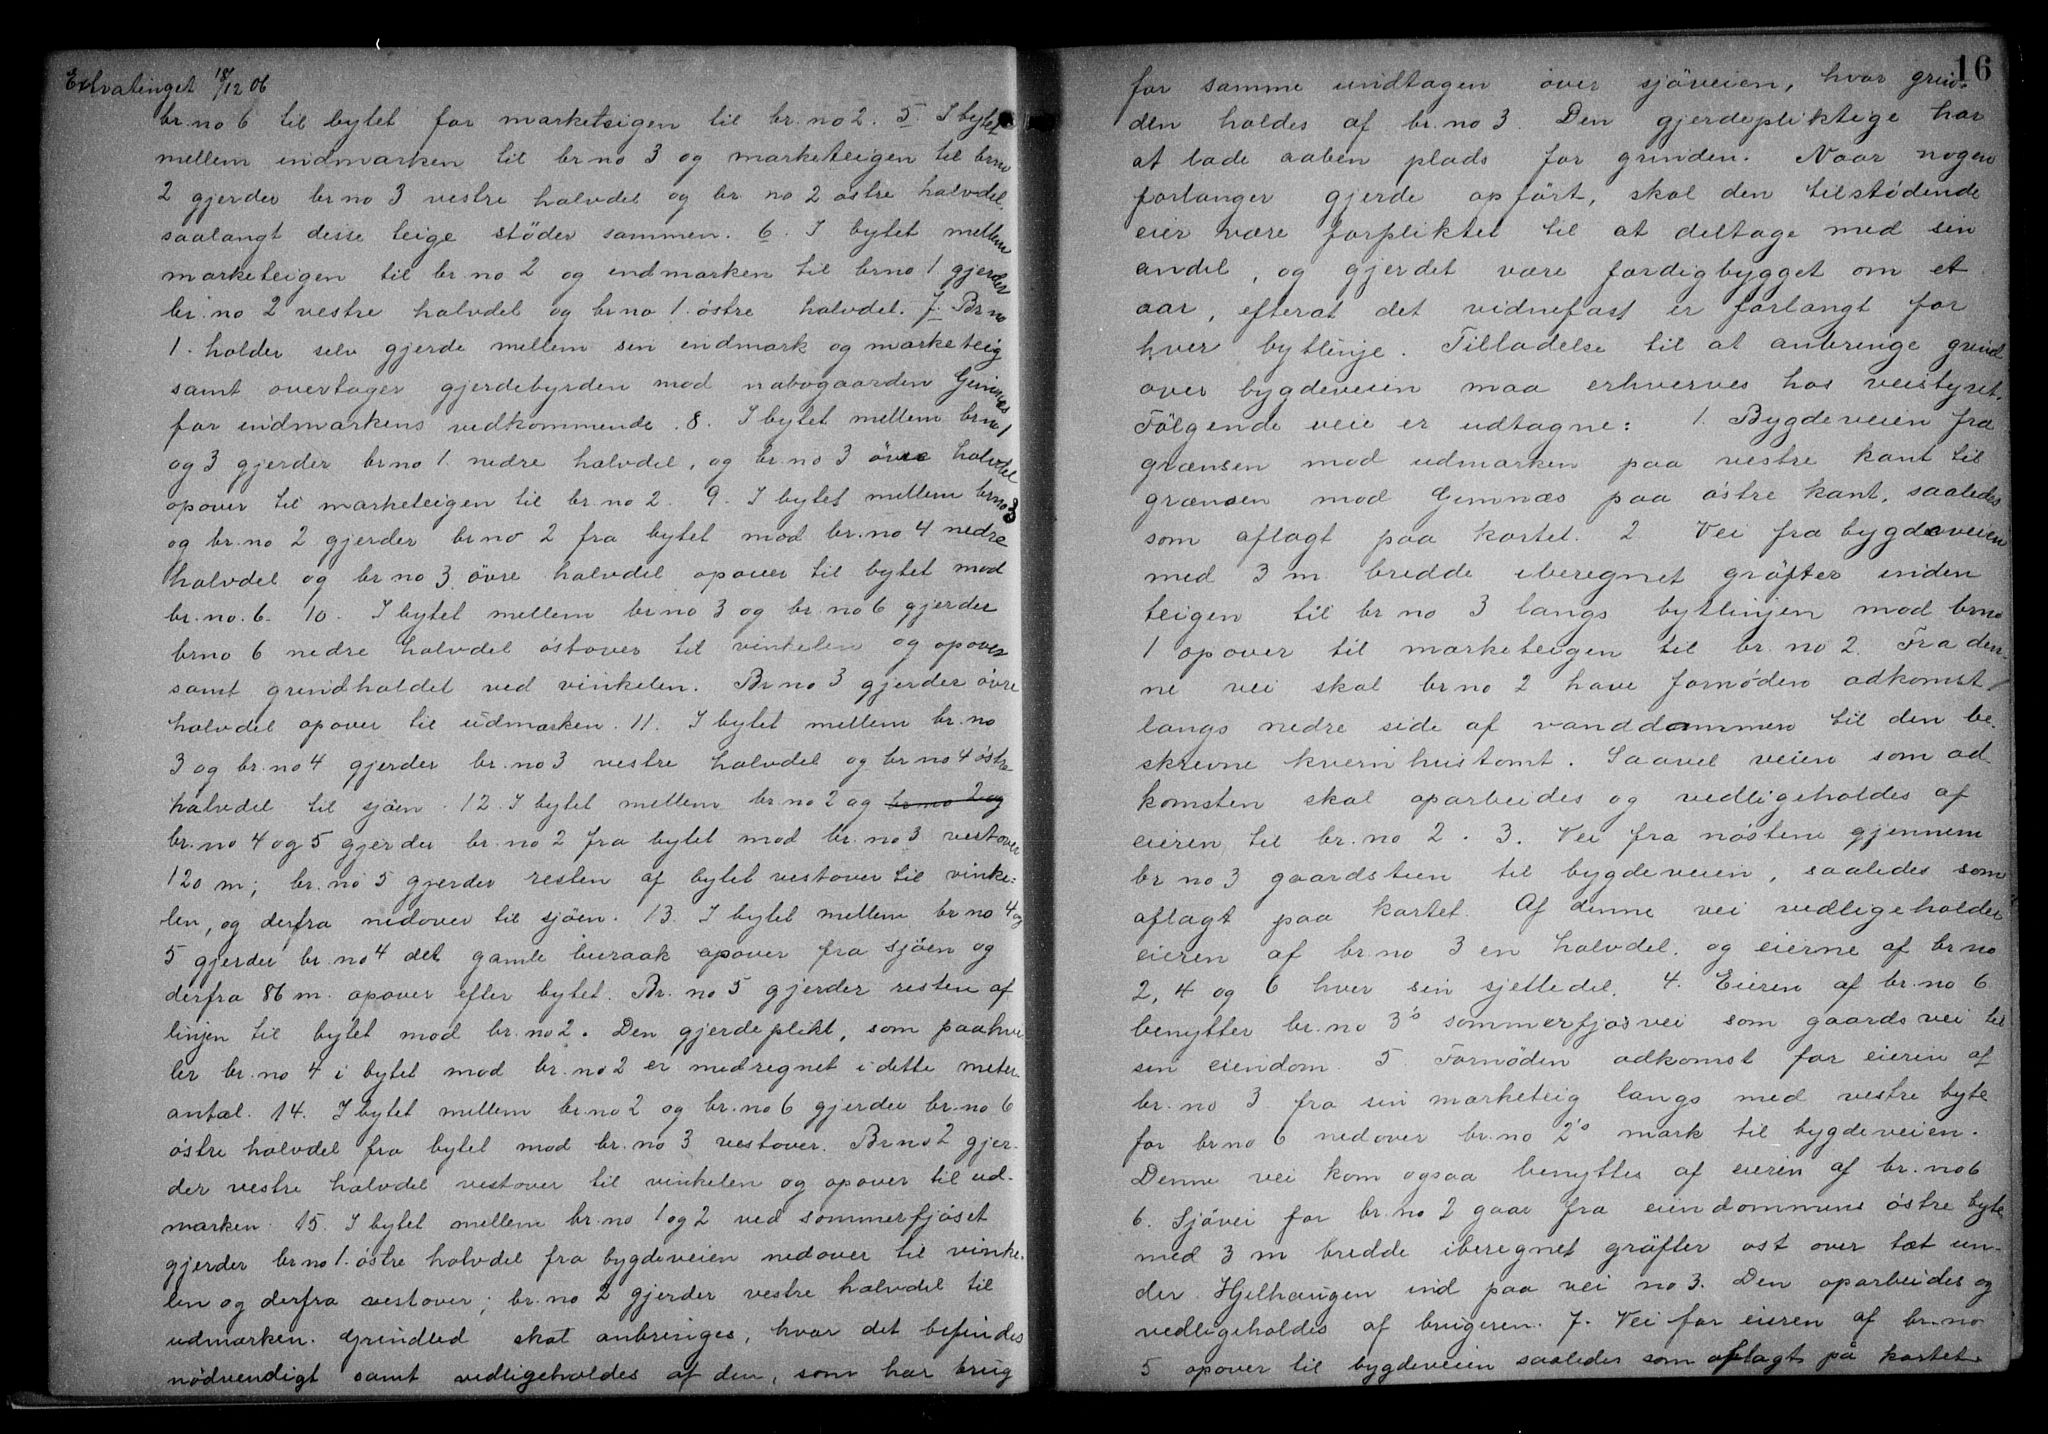 Extratinget 18/12 06
br.no 6 til bytet for marketeigen til br.no 2. 5. I bytet
mellem indmarken til br no 3 og marketeigen til brno
2 gjerder br no 3 vestre halvdel og br. no 2 østre halvdel,
saalangt disse teige støder sammen. 6. I bytet mellem
marketeigen til br.no 2 og indmarken til brno 1 gjerder
br.no 2 vestre halvdel og br no 1. østre halvdel. 7. Br no
1. holder selv gjerde mellem sin indmark og marketeig
samt overtager gjerdebyrden mod nabogaarden Gimnes
for indmarkens vedkommende. 8. I bytet mellem brno 1
og 3 gjerder br no 1. nedre halvdel, og br.no 3 øvre halvdel
opover til marketeigen til br.no 2. 9. I bytet mellem brno 3
og br.no 2 gjerder br no 2 fra bytet mod br.no 4 nedre
halvdel og br no 3 øvre halvdel opover til bytet mod
br.no.6. 10. I bytet mellem br no 3 og br.no 6 gjerder
brno 6 nedre halvdel østover til vinkelen og opover
samt grindholdet ved vinkelen. Br no 3 gjerder øvre
halvdel opover til udmarken. 11. I bytet mellem br.no
3 og br.no 4 gjerder br.no 3 vestre halvdel og br no 4 østre
halvdel til sjøen. 12. I bytet mellem br no 2 og br no 2 og
br.no 4 og 5 gjerder br.no 2 fra bytet mod br.no 3 vestover
120 m; br.no 5 gjerder resten af bytet vestover til vinke-
len, og derfra nedover til sjøen. 13. I bytet mellem br no 4 og
5 gjerder br.no 4 det gamle opover fra sjøen og
derfra 86 m. opover efter bytet. Br.no 5 gjerder resten af
linjen til bytet mod br.no 2. Den gjerdeplikt, som paahvi-
ler br.no 4 i bytet mod br.no 2 er medregnet i dette meter-
antal. 14. I bytet mellem br no 2 og br.no 6 gjerder br.no 6
østre halvdel fra bytet mod br.no 3 vestover. Br no 2 gjer-
der vestre halvdel vestover til vinkelen og opover til ud-
marken. 15. I bytet mellem br.no 1 og 2 ved sommerfjøset
gjerder br no 1. østre halvdel fra bygdeveien nedover til vinke-
len og derfra vestover; br.no 2 gjerder vestre halvdel til
udmarken. Grindled skal anbringes, hvor det befindes
nødvendigt samt vedligeholdes af den, som har brug
16
for samme undtagen over sjøveien, hvor grin-
den holdes af br.no 3. Den gjerdepliktige har
at lade aaben plads for grinden. Naar nogen
forlanger gjerde opført, skal den tilstødende
eier være forpliktet til at deltage med sin
andel, og gjerdet være færdigbygget om et
aar, efterat det vidnefast er forlangt for
hver bytlinje. Tilladelse til at anbringe grind
over bygdeveien maa erhverves hos veistyret.
Følgende veie er udtagne: 1. Bygdeveien fra
grænsen mod udmarken paa vestre kant til
grænsen mod Gimnæs paa østre kant, saaledes
som aflagt paa kartet. 2. Vei fra bygdeveien
med 3 m bredde iberegnet grøfter inden
teigen til br no 3 langs bytlinjen mod brno
1 opover til marketeigen til br.no 2. Fra den-
ne vei skal br no 2 have fornøden adkomst
langs nedre side af vanddammen til den be-
skrevne kvernhustomt. Saavel veien som ad-
komsten skal oparbeides og vedligeholdes af
eieren til br.no 2. 3. Vei fra nøstene gjennem
br no 3 gaardstun til bygdeveien, saaledes som
aflagt paa kartet. Af denne vei vedligeholder
eieren af br.no 3 en halvdel, og eierne af br no
2, 4 og 6 hver sin sjettedel. 4. Eieren af br.no 6
benytter br.no 3's sommerfjøsvei som gaardsvei til
sin eiendom. 5. Fornøden adkomst for eieren af
br.no 3 fra sin marketeig langs med vestre byte
for br no 6 nedover br.no 2's mark til bygdeveien.
Denne vei kan ogsaa benyttes af eieren af br.no 6
6. Sjøvei for br.no 2 gaar fra eiendommens østre byte
med 3 m bredde iberegnet grøfter ost over tæt un-
der Hjelhaugen ind paa vei no 3. Den oparbeides og
vedligeholdes af brugeren. 7. Vei for eieren af br.no
5 opover til bygdeveien saaledes som aflagt på kartet